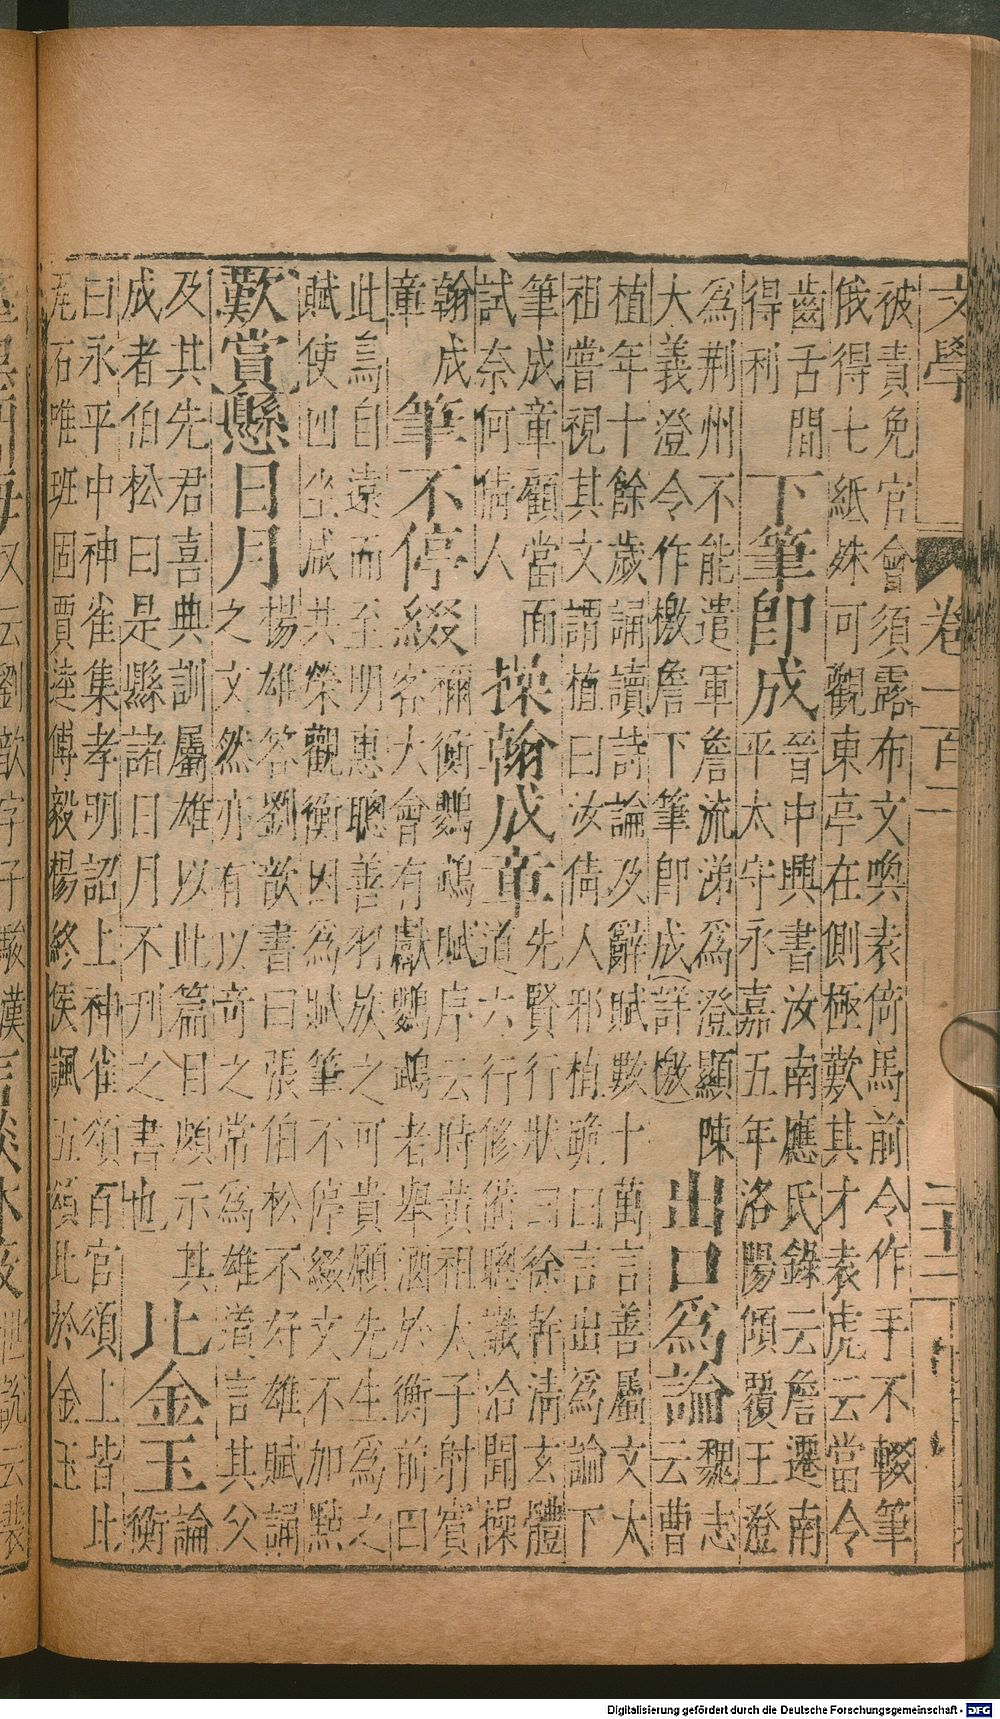 文學 卷一百二 二十二
被責免官會須露布文喚袁倚馬前令作手不輟筆
俄得七紙殊可觀東亭在側極歎其才袁虎云當令
齒舌間
得利
下筆即成
晉中興書汝南應氏錄云詹遷南
平太守永嘉五年洛陽傾覆王澄
為荆州不能遣軍詹流涕為澄顯陳
大義澄令作檄詹下筆即成詳檄
出口為論
魏志
云曹
植年十餘歲誦讀詩論及辭賦數十萬言善屬文太
祖嘗視其文謂植曰汝倩人邪植跪曰言出為論下
筆成章顧當面
試奈何倩人
操翰成章
先賢行狀曰徐幹清玄體
道六行修備聰識洽聞操
翰成
章
筆不停綴
禰衡鸚鵡賦序云時黃祖太子射賓
客大會有獻鸚鵡者舉酒於衡前曰
此鳥自遠而至明惠聰善羽族之可貴願先生為之
賦使四坐咸共榮觀衡因為賦筆不停綴文不加點
歎賞懸日月
楊雄荅劉歆書曰張伯松不好雄賦誦
之文然亦有以竒之常為雄道言其父
及其先君喜典訓屬雄以此篇目頗示其
成者伯松曰是懸諸日月不刊之書也
比金玉
論
衡
曰永平中神雀集孝明詔上神雀頌百官頌上皆比
瓦石唯班固賈逵傅毅楊終侯諷五頌此於金玉
Digitalisierung gefördert durch die Deutsche Forschungsgemeinschaft - DFG